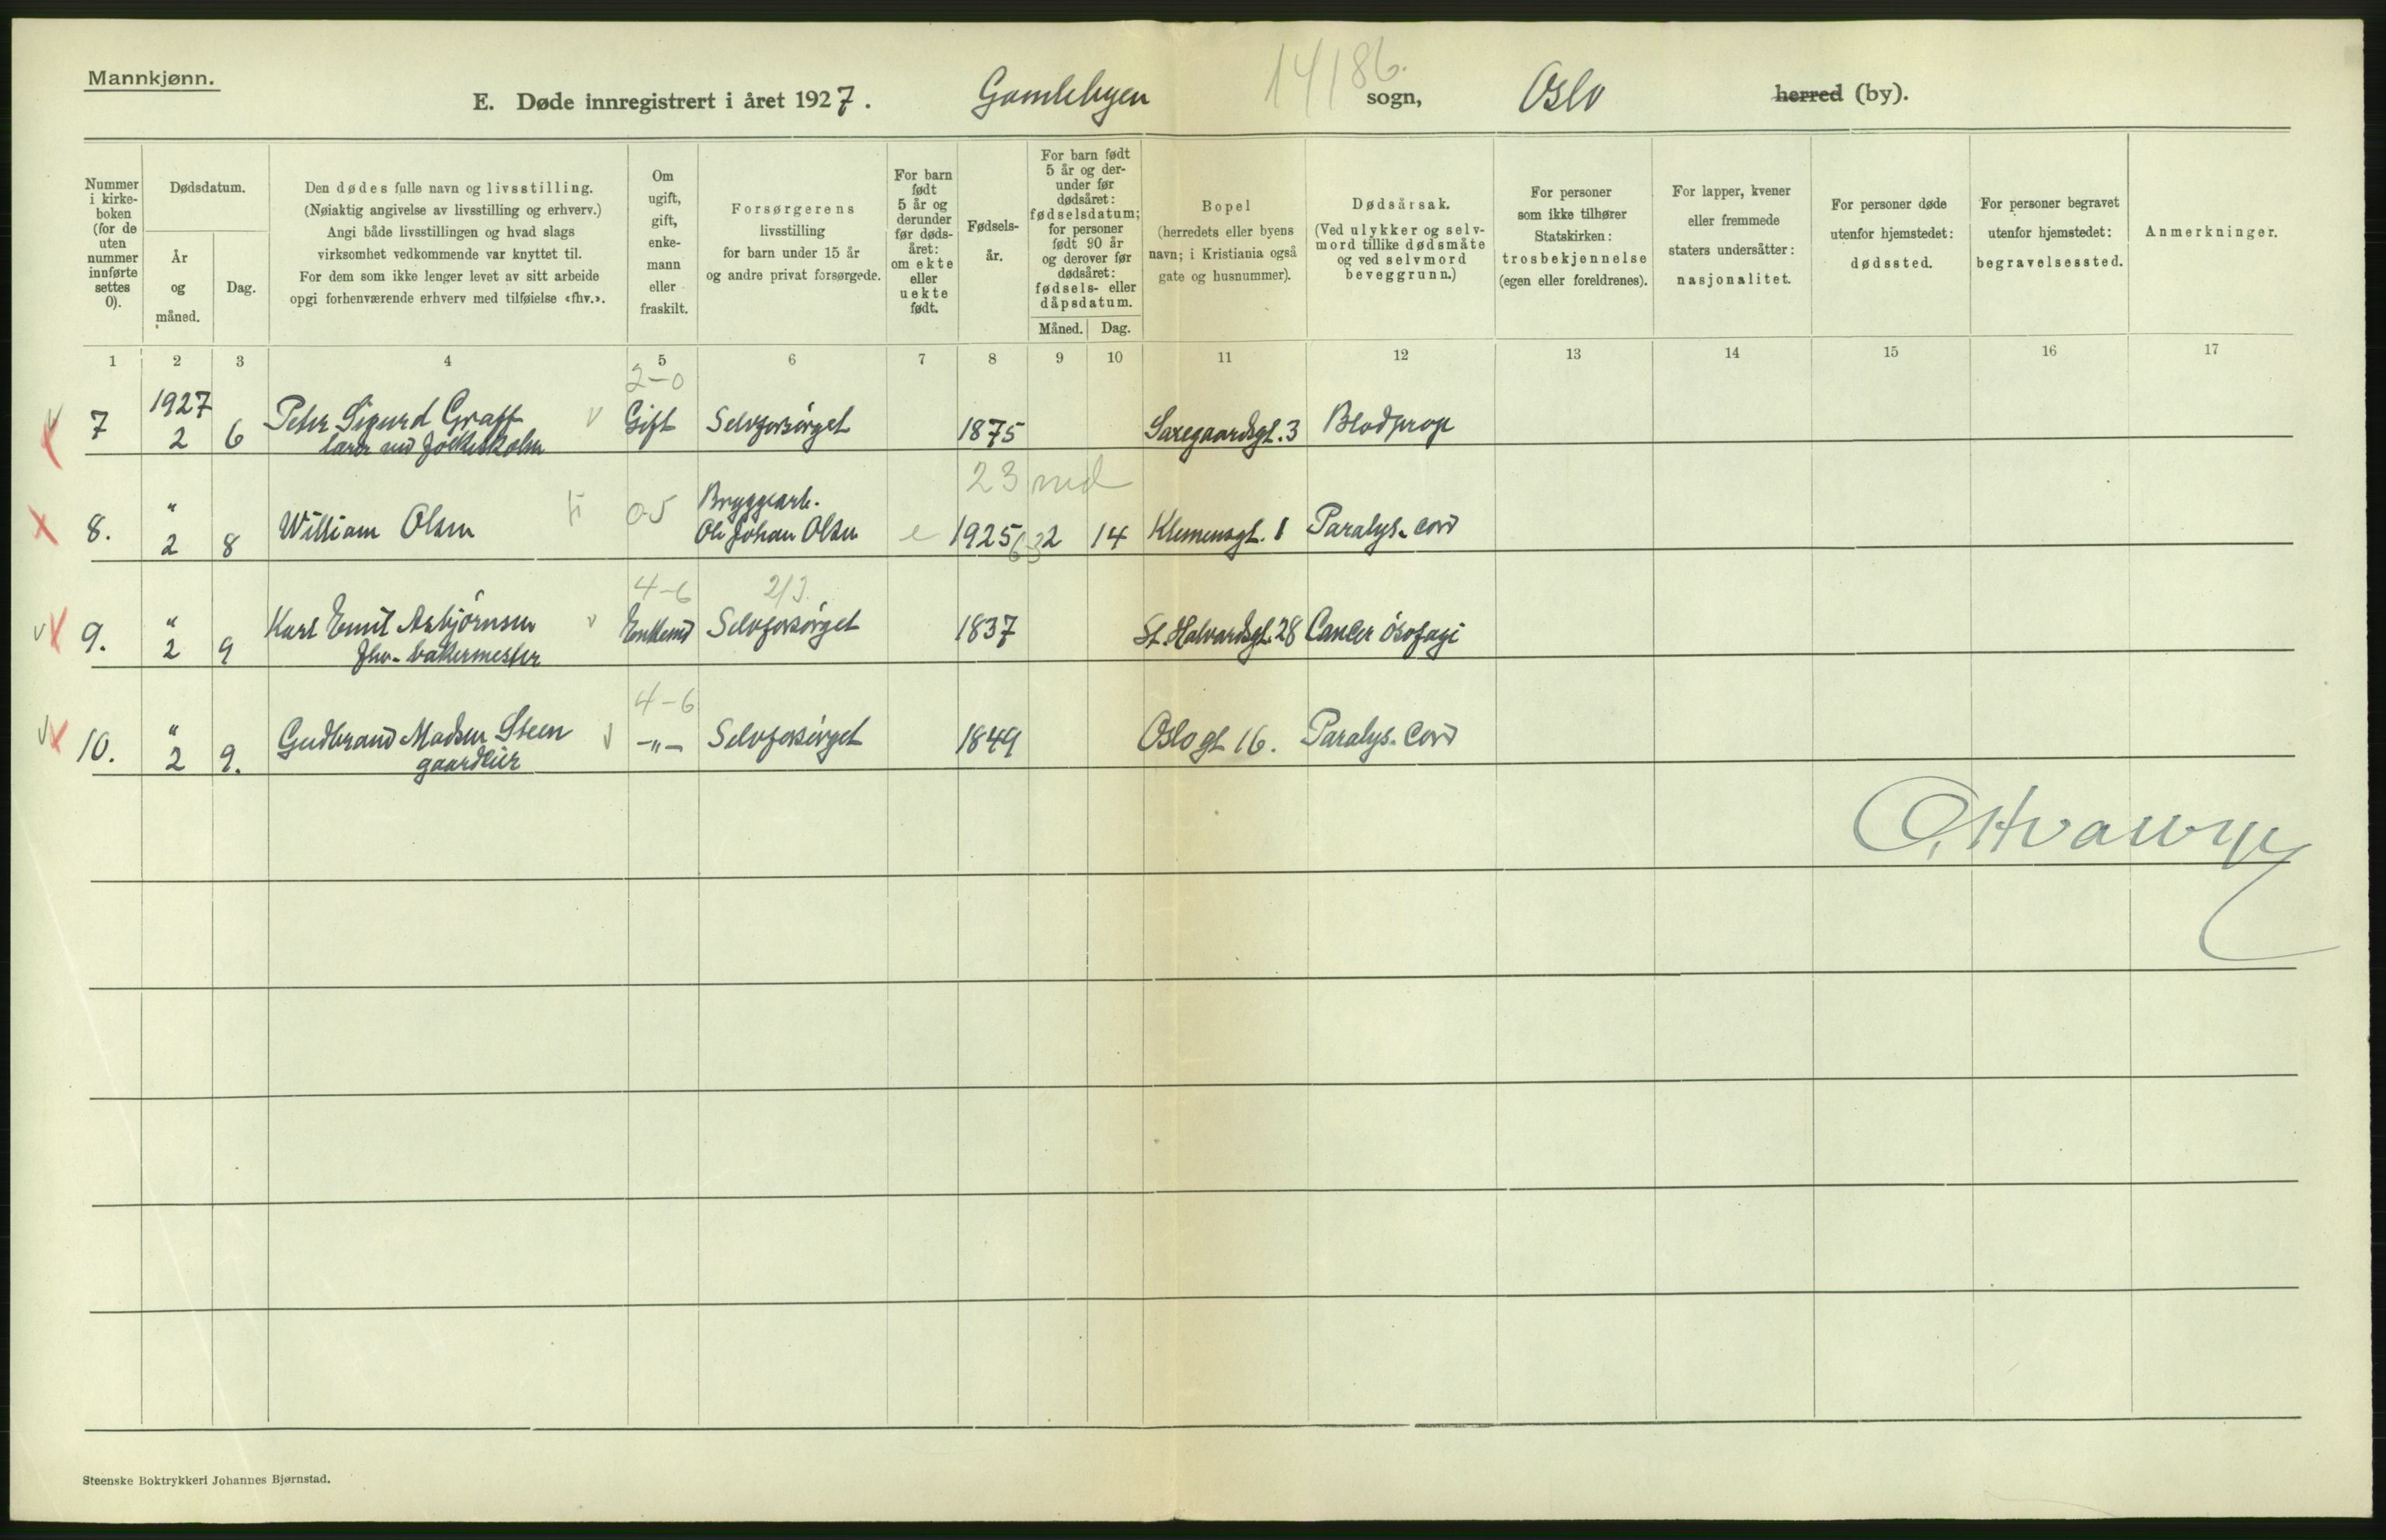 Mannkjønn.
E. Døde innregistrert i året 1927. Gamlebyen sogn, Oslo herred (by).
14186.
Nummer i kirke- boken (for de uten nummer innførte settes 0).
Dødsdatum.
År og måned.
Dag.
Den dødes fulle navn og livsstilling.
(Nøiaktig angivelse av livsstilling og erhverv.)
Angi både livsstillingen og hvad slags
virksomhet vedkommende var knyttet til.
For dem som ikke lenger levet av sitt arbeide
opgi forhenværende erhverv med tilføielse «fhv.».
Om ugift, gift, enke- mann eller fraskilt.
Forsørgerens
livsstilling
for barn under 15 år
og andre privat forsørgede.
For barn født 5 år og derunder før døds- året: om ekte eller uekte født.
Fødsels- år.
For barn født 5 år og der- under før dødsåret: fødselsdatum; for personer født 90 år og derover før dødsåret: fødsels- eller dåpsdatum.
Måned. Dag.
Bopel
(herredets eller byens
navn; i Kristiania også
gate og husnummer).
Dødsårsak.
(Ved ulykker og selv-
mord tillike dødsmåte
og ved selvmord
beveggrunn.)
For personer
som ikke tilhører
Statskirken:
trosbekjennelse
(egen eller foreldrenes).
For lapper, kvener
eller fremmede
staters undersåtter:
nasjonalitet.
For personer døde
utenfor hjemstedet:
dødssted.
For personer begravet
utenfor hjemstedet:
begravelsessted.
Anmerkninger.
1 2 3 4 5 6 7 8 9 10 11 12 13 14 15 16 17
2-0
1927
7 2 6 Peter Sigurd Graff Gift Selvforsørget 1875 Saxegaardsgt. 3 Blodprop
lærer ved folkeskolen
23 md
" Bryggearb.
8. 2 8 William Olsen 05 Ole Johan Olsen e 1925 2 14 Klemensgt. 1 Paralys. cord
4-6 2/3.
9. " 2 9 Karl Emil Asbjörnsen Enkemd Selvforsørget 1837 St. Halvardsgt. 28 Cancer ösofagi
fhv. bakermester
4-6
10. " 2 9. Gudbrand Madsen Steen -"- Selvforsørget 1849 Oslogt 16. Paralys. Cord
gaardeier
Steenske Boktrykkeri Johannes Bjørnstad.